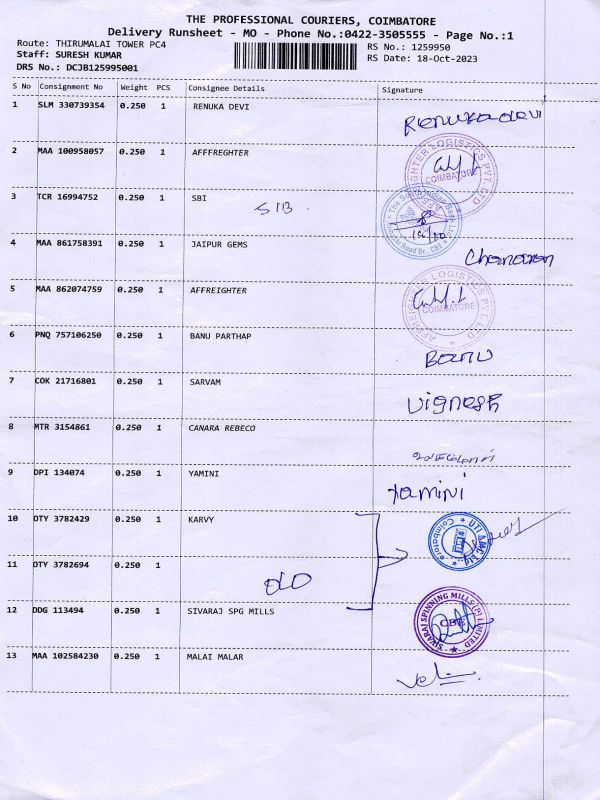 THE PROFESSIONAL COURIERS, COIMBATORE
Delivery Runsheet - MO - Phone No.:0422-3505555 - Page No.:1
Route: THIRUMALAI TOWER PC4
RS No.: 1259950
Staff: SURESH KUMAR
RS Date: 18-Oct-2023
DRS No.: DCJB125995001
S No Consignment No Weight PCS Consignee Details Signature
1 SLM 330739354 0.250 1 RENUKA DEVI Renukadevi
2 MAA 100958057 0.250 1 AFFFREGHTER
COIMBATORE
3 TCR 16994752 0.250 1 SBI
SIB
4 MAA 861758391 0.250 1 JAIPUR GEMS
5 MAA 862074759 0.250 1 AFFREIGHTER
COIMBATORE
6 PNQ 757106250 0.250 1 BANU PARTHAP
Banu
7 COK 21716801 0.250 1 SARVAM
Vignesh
8 MTR 3154861 0.250 1 CANARA REBECO
9 DPI 134074 0.250 1 YAMINI
Yamini
10 OTY 3782429 0.250 1 KARVY
UTI AMC Ltd * Coimbatore *
11 OTY 3782694 0.250 1
12 DDG 113494 0.250 1 SIVARAJ SPG MILLS
SIVARAJ SPINNING MILLS (P) LIMITED
CBE
13 MAA 102584230 0.250 1 MALAI MALAR